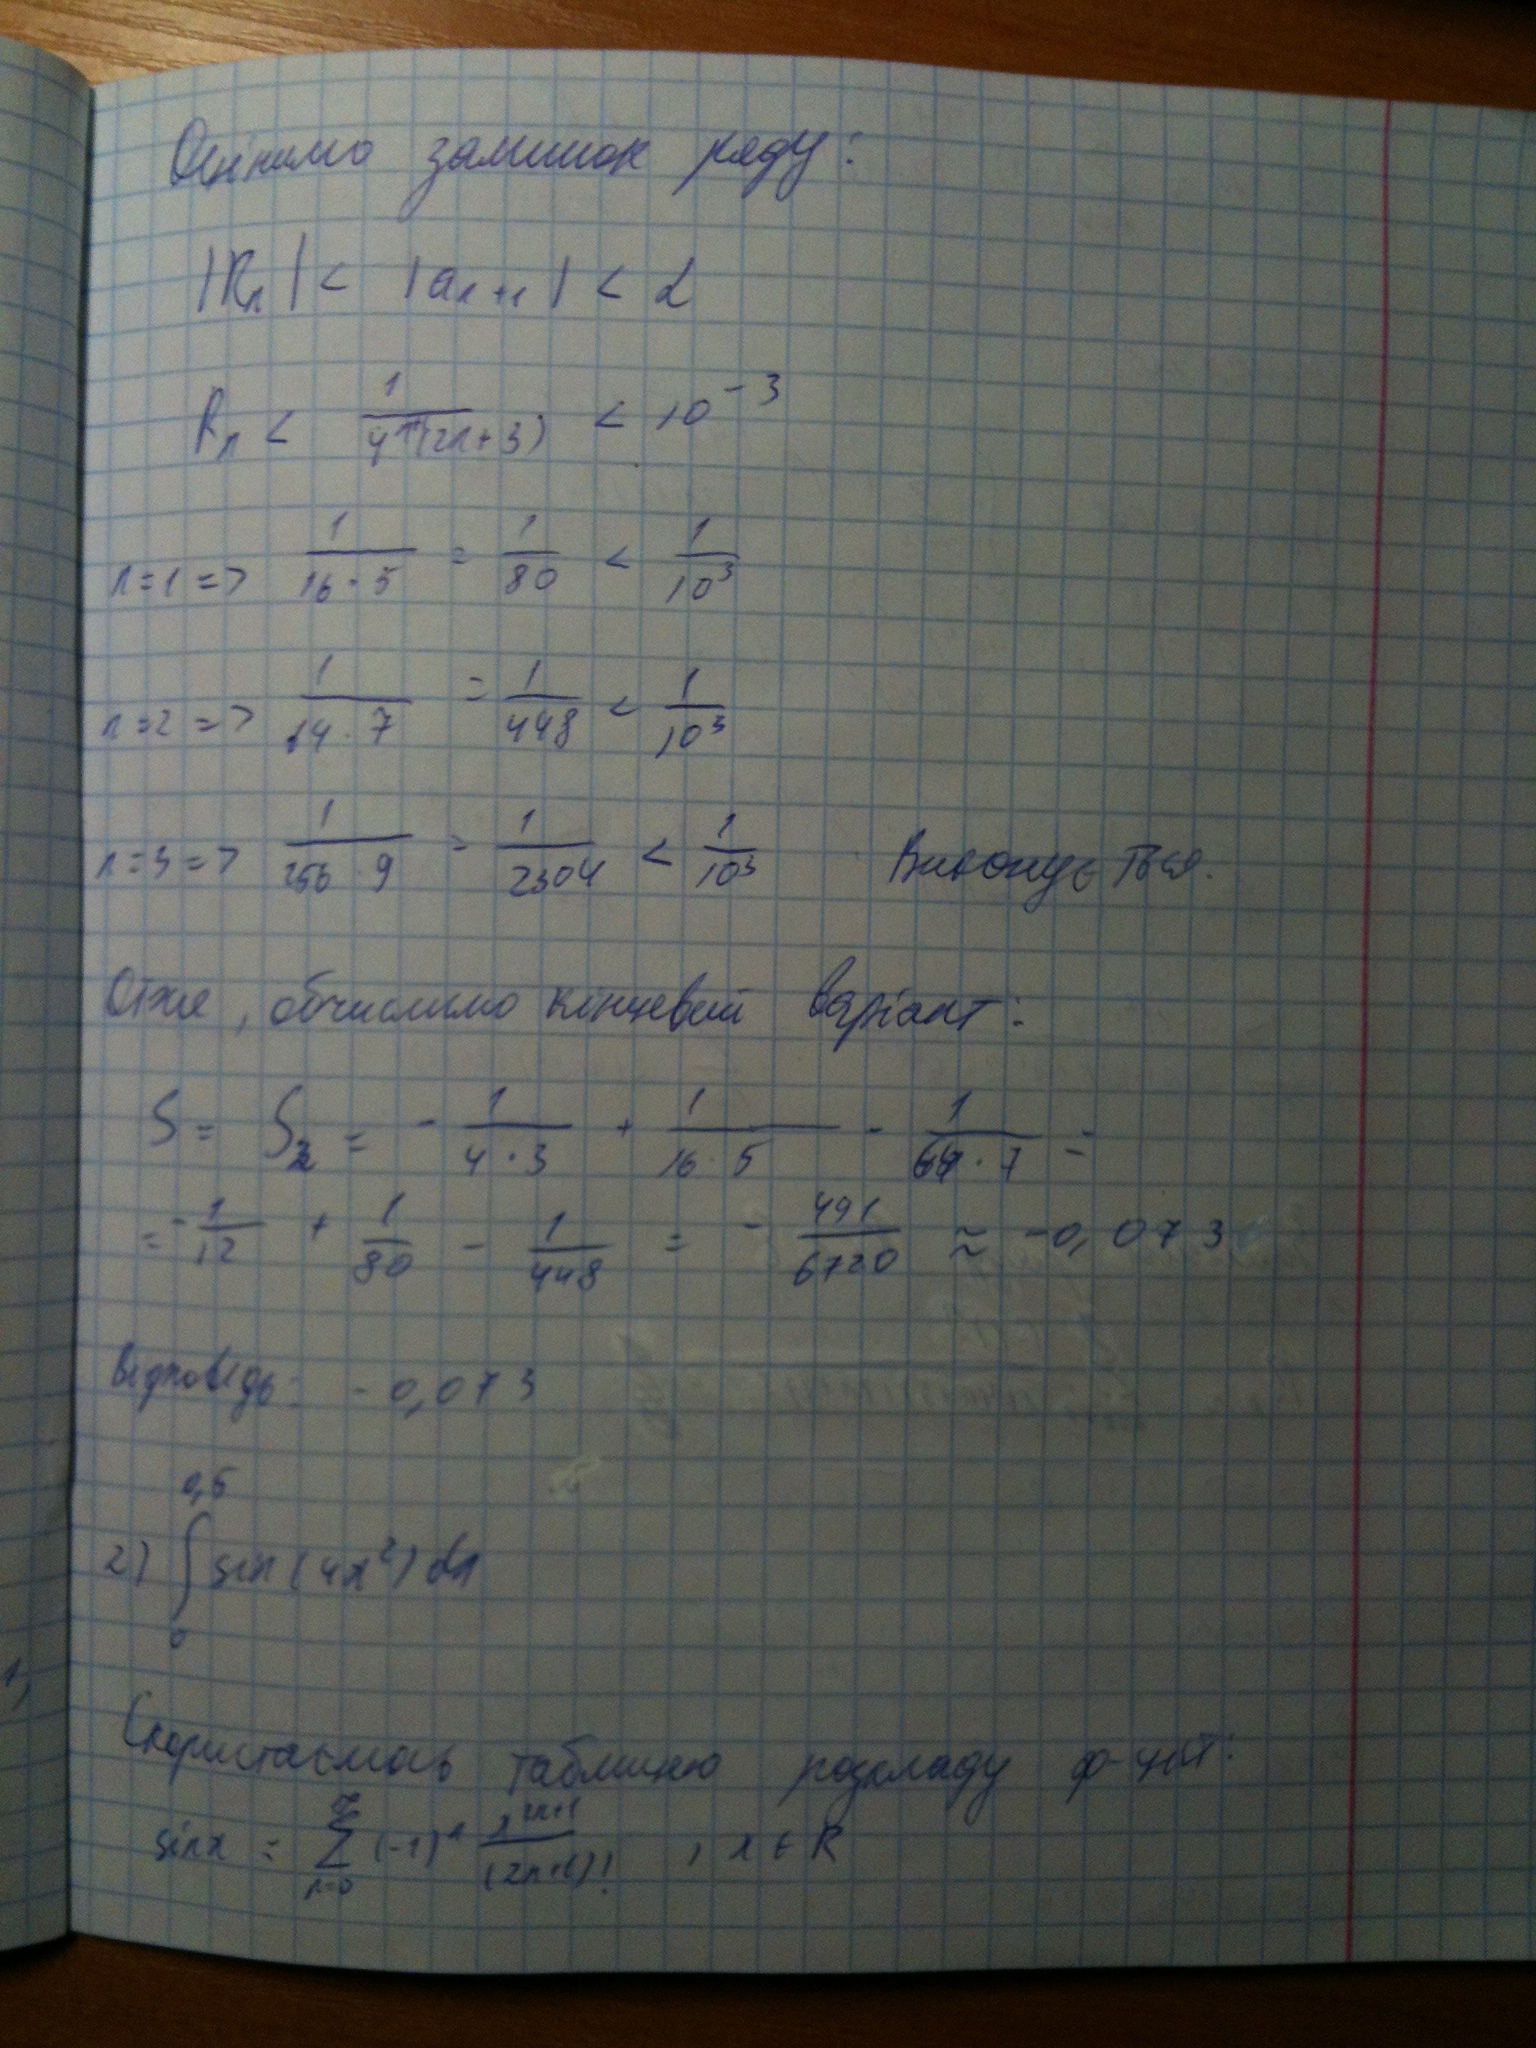 Оцінимо залишок ряду:
|Rₙ| < |aₙ₊₁| < α
Rₙ < 1/(4ⁿ⁺¹(2n+3)) < 10⁻³
n=1 => 1/(16·5) = 1/80 < 1/10³
n=2 => 1/(64·7) = 1/448 < 1/10³
n=3 => 1/(256·9) = 1/2304 < 1/10³ Виконується.
Отже, обчислимо кінцевий варіант:
S = S₃ = -1/(4·3) + 1/(16·5) - 1/(64·7) =
= -1/12 + 1/80 - 1/448 = -491/6720 ≈ -0,073
Відповідь: -0,073
2) ∫₀^0,5 sin(4x²)dx
Скористаємось таблицею розкладу ф-цій:
sinx = ∑ₙ₌₀^∞ (-1)ⁿ x²ⁿ⁺¹/(2n+1)! , x ∈ R